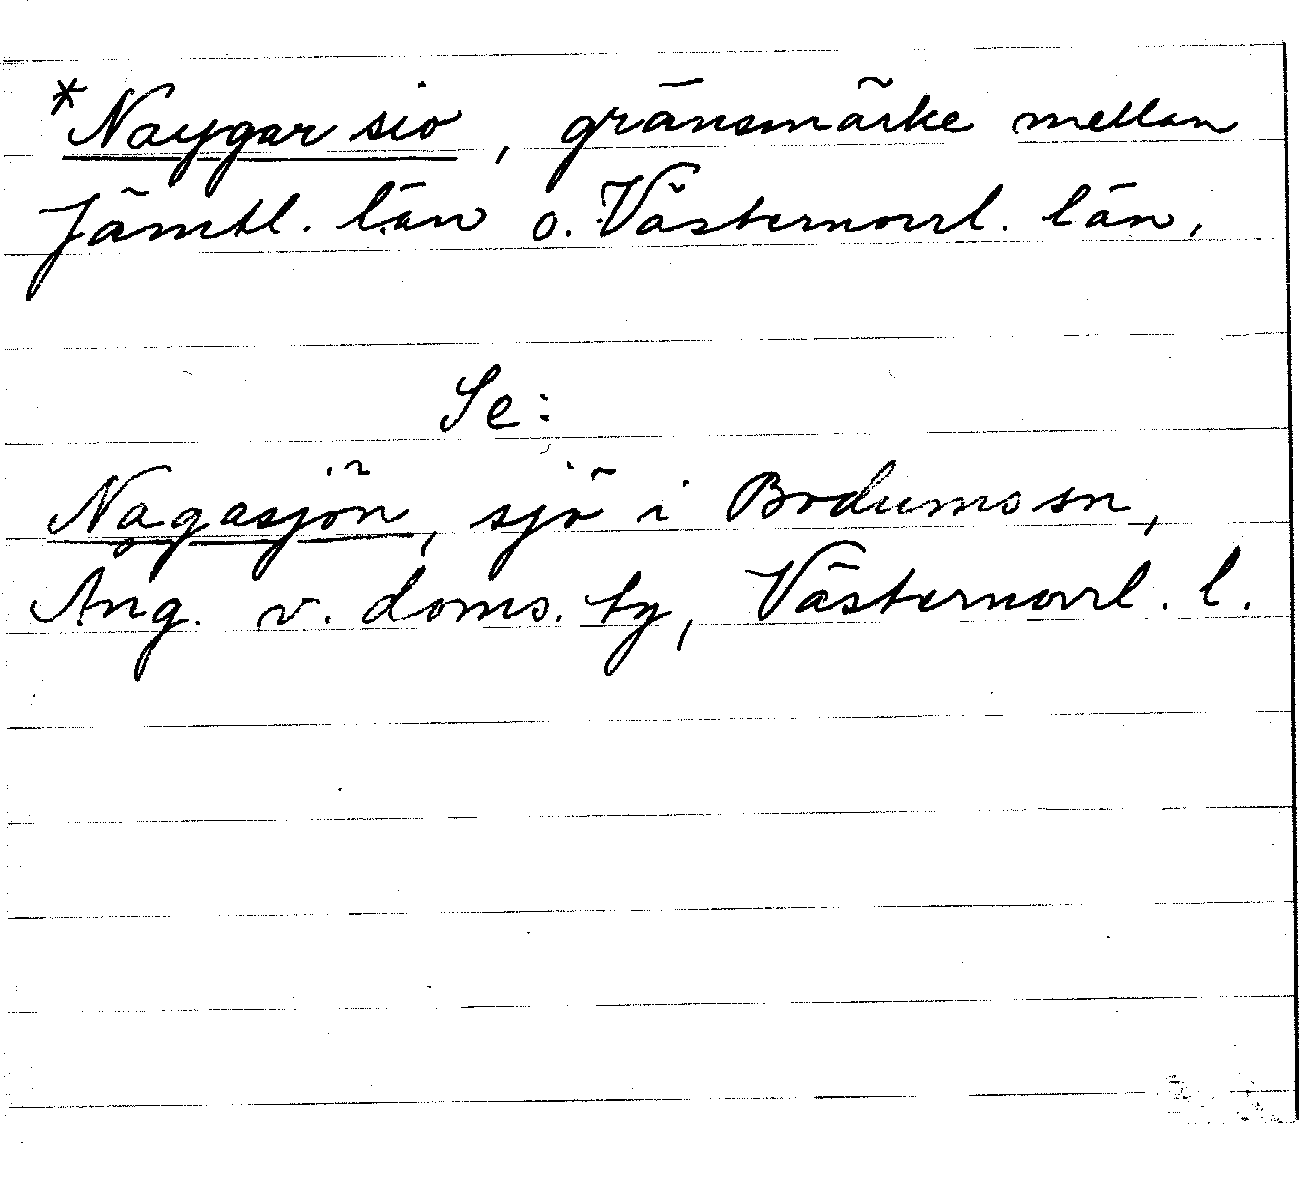 *Naygar sio, gränsmärke mellan
Jämtl. län o. Västernorrl. län.
Se:
Nagasjön, sjö i Bodums sn,
Ång. v. doms. ty, Västernorrl. l.